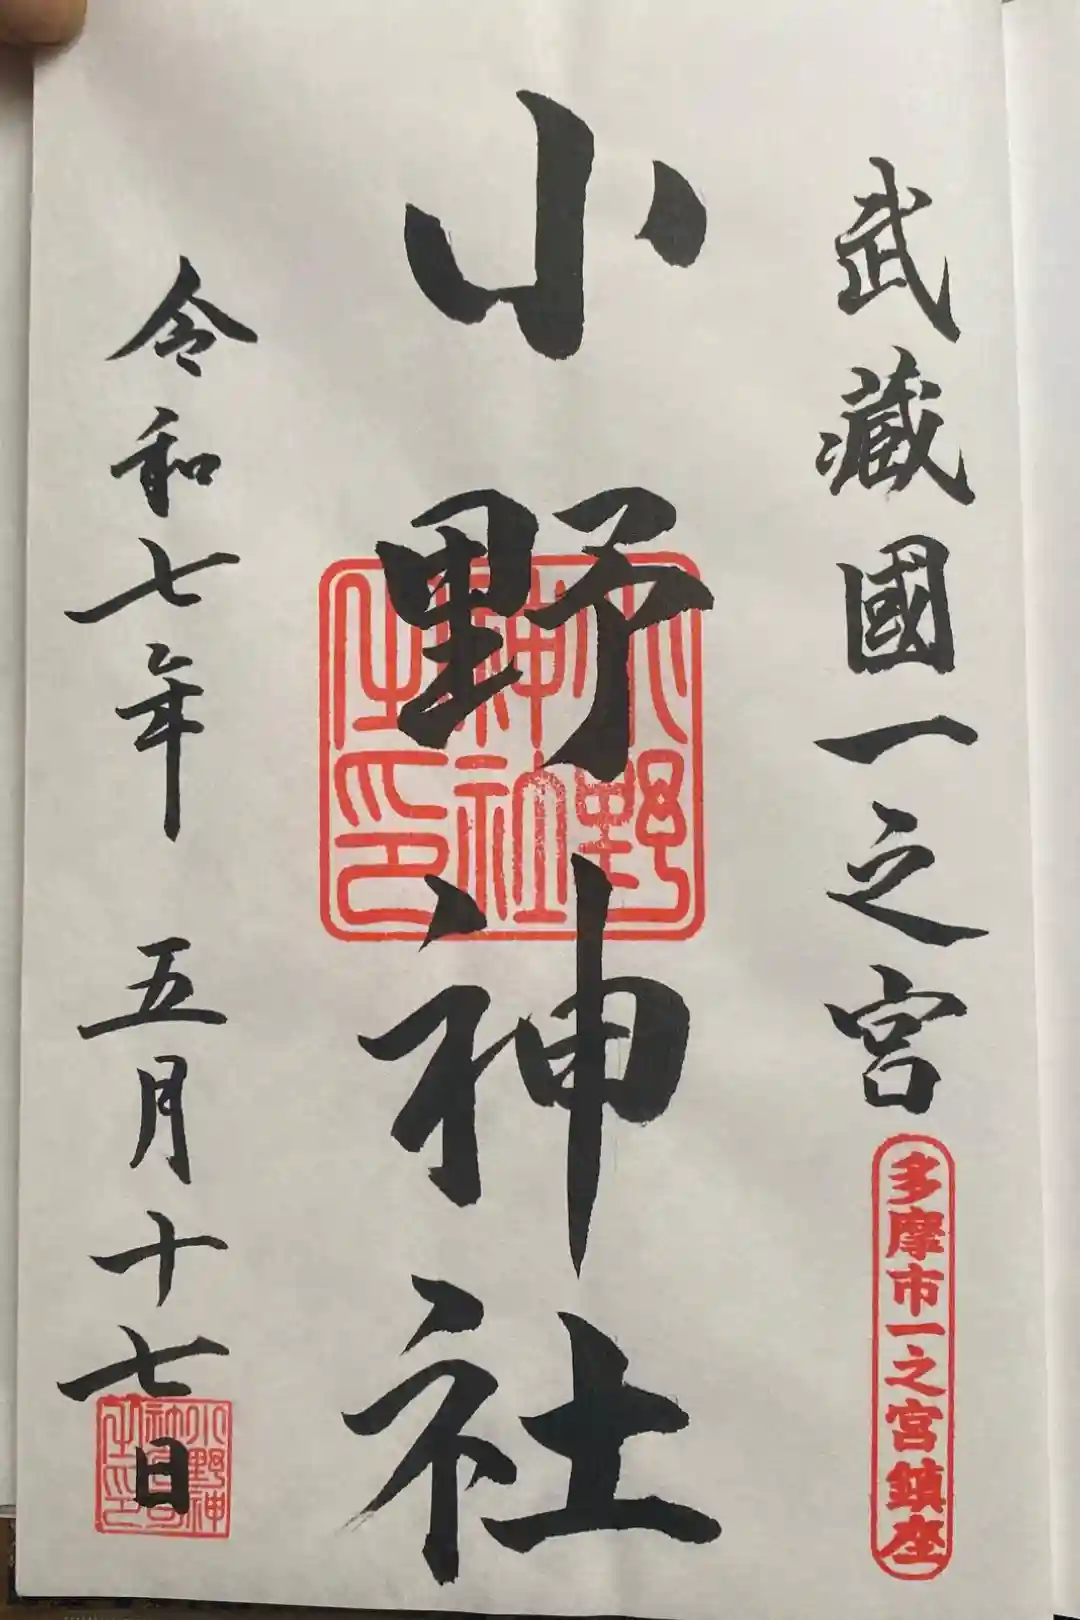 武蔵國一之宮
多摩市一之宮鎮座
小野神社
小野神社之印
令和七年 五月十七日